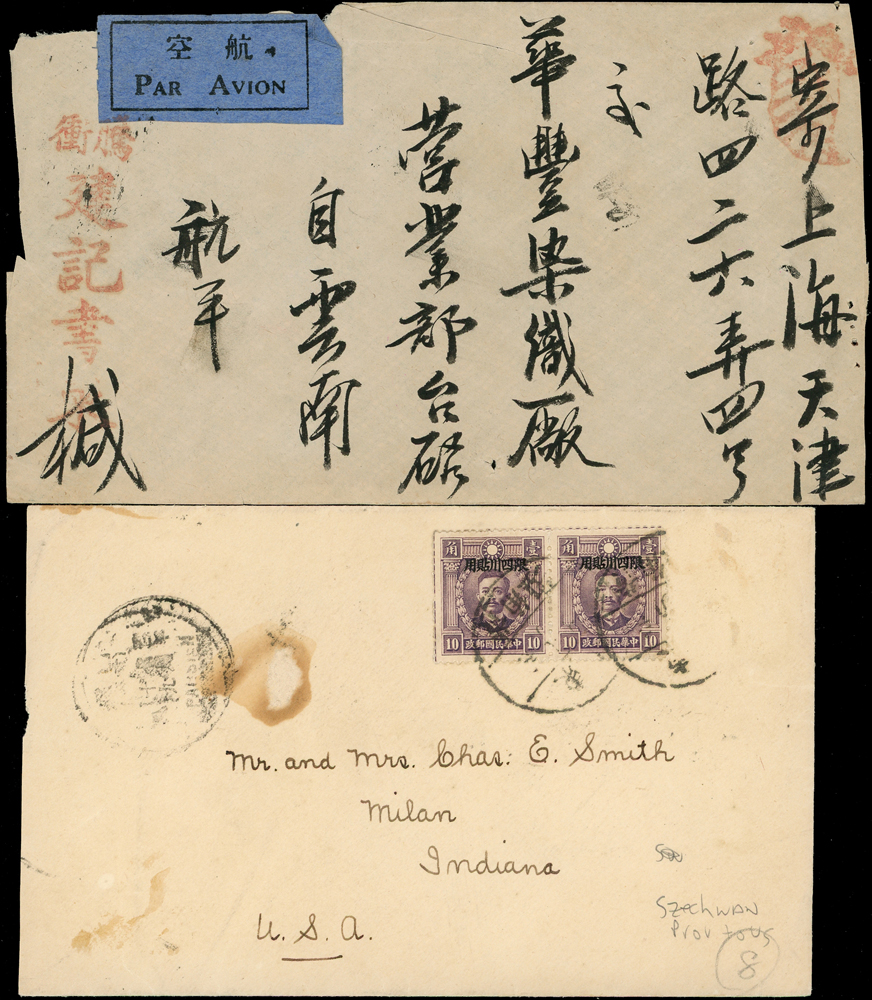 航空
PAR AVION
寄上海天津
路四二六弄四号
交
華豐染織廠
營業部台
自雲南
航平
騰衝
建記書
緘
壹角
限四川貼用
10 中華民國郵政 10
壹角
限四川貼用
10 中華民國郵政 10
Mr. and Mrs. Chas. E. Smith
Milan
Indiana
U. S. A.
Szechwan
8